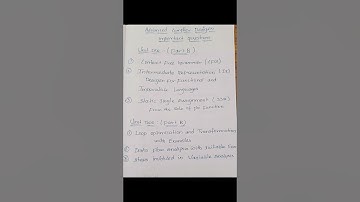 Advanced Compiler Design
Important Questions
Unit One : (Part A)
① Context Free Grammar (CFG)
② Intermediate Representation (IR)
Design for Functional and
Imperative Languages
③ Static Single Assignment (SSA)
from the Role of its Function
Unit One : (Part B)
① Loop optimization and Transformation
with Examples
② Data Flow Analysis with Suitable
③ Steps Involved in Variable Analysis